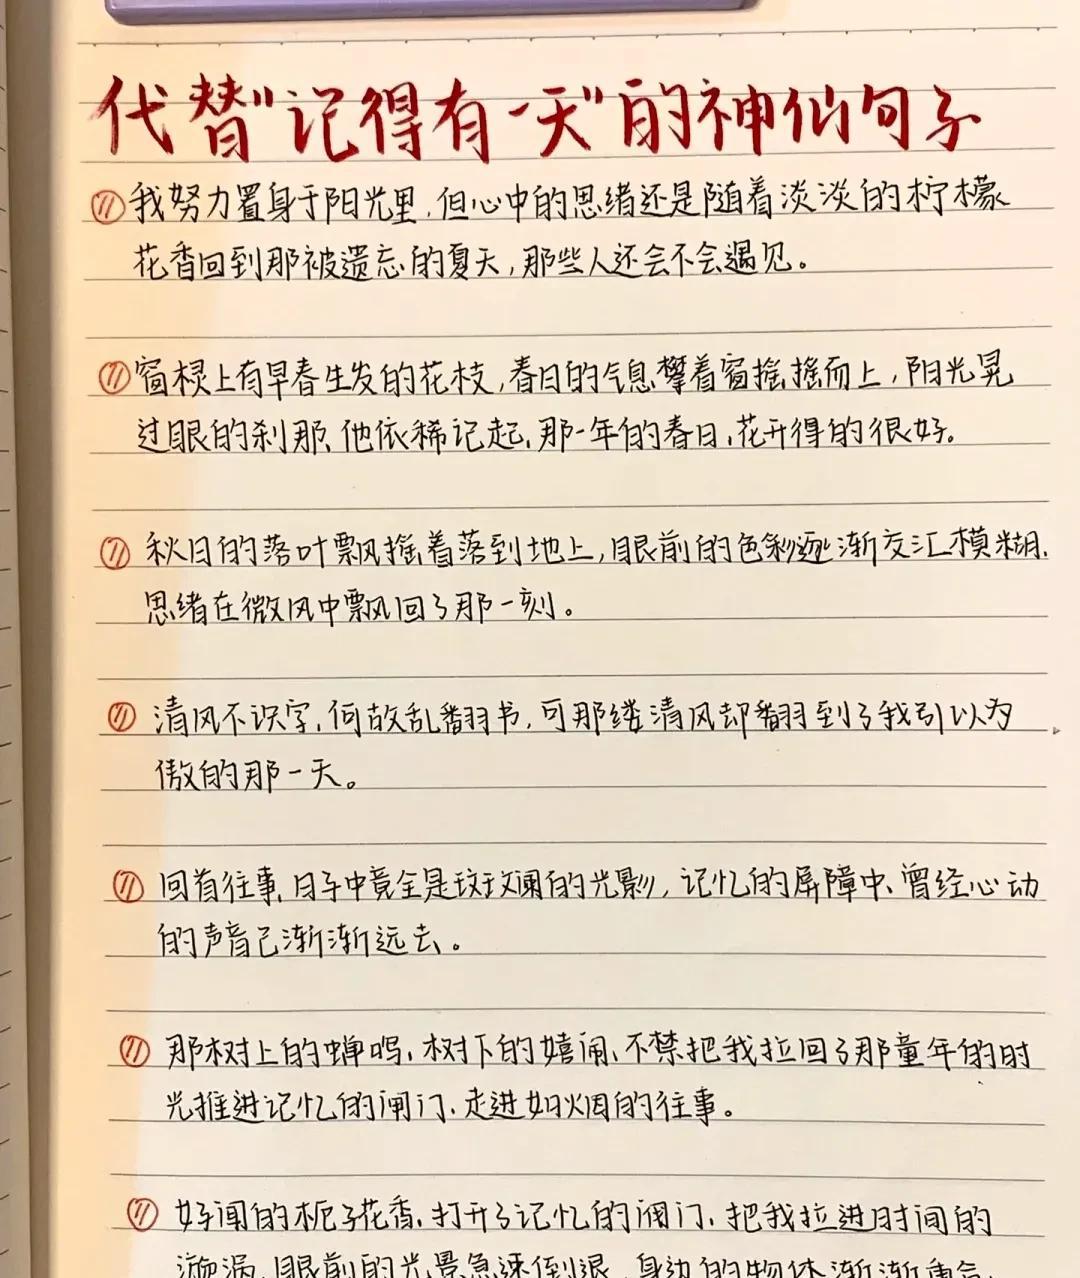 代替"记得有一天"的神仙句子
我努力置身于阳光里,但心中的思绪还是随着淡淡的柠檬
花香回到那被遗忘的夏天,那些人还会不会遇见。
窗棂上有早春生发的花枝,春日的气息攀着窗摇摇而上,阳光晃
过眼的刹那,他依稀记起,那一年的春日,花开得的很好。
秋日的落叶飘摇着落到地上,眼前的色彩逐渐交汇模糊,
思绪在微风中飘回了那一刻。
清风不识字,何故乱翻书,可那缕清风却翻到了我引以为
傲的那一天。
回首往事,日子中竟全是斑斓的光影,记忆的屏障中,曾经心动
的声音已渐渐远去。
那树上的蝉鸣,树下的嬉闹,不禁把我拉回了那童年的时
光推进记忆的闸门,走进如烟的往事。
好闻的栀子花香,打开了记忆的闸门,把我拉进时间的
漩涡,眼前的光景急速倒退,身边的物体渐渐重合